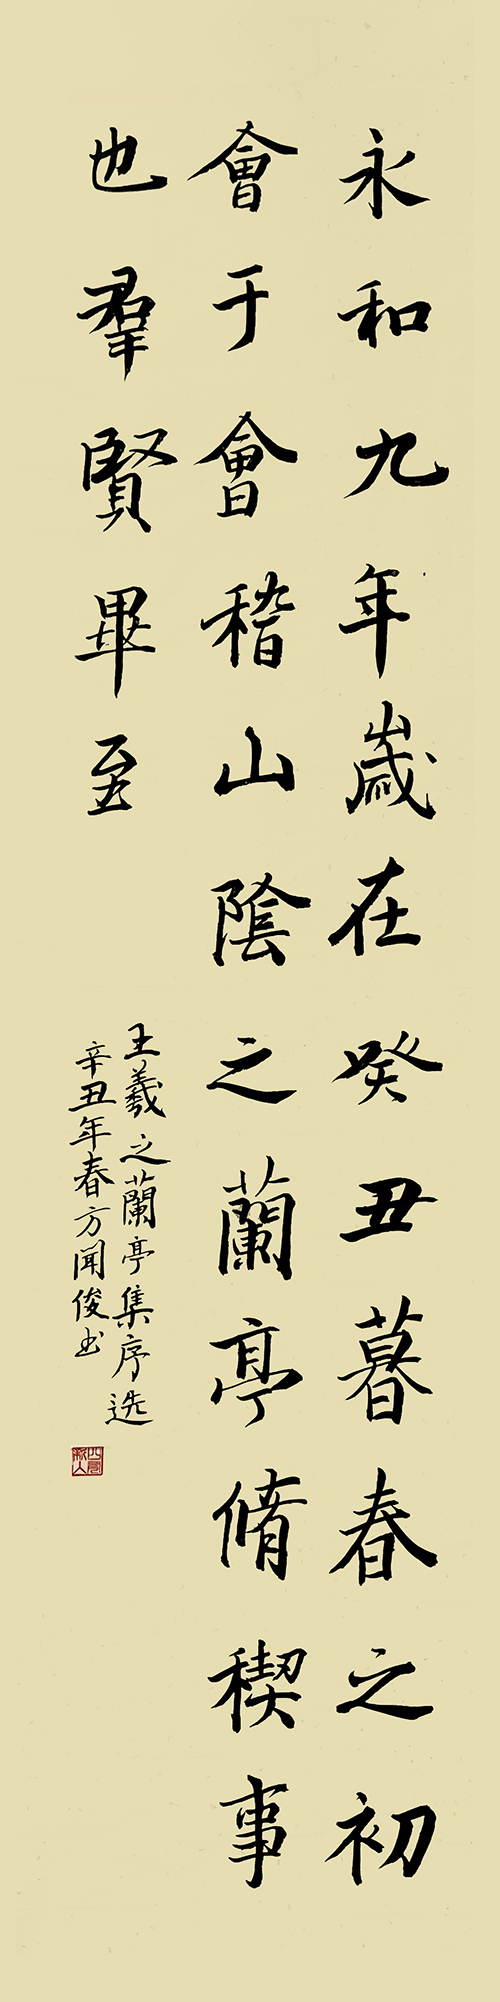 永和九年歲在癸丑暮春之初
會于會稽山陰之蘭亭脩稧事
也羣賢畢至
王羲之蘭亭集序選
辛丑年春方聞俊书